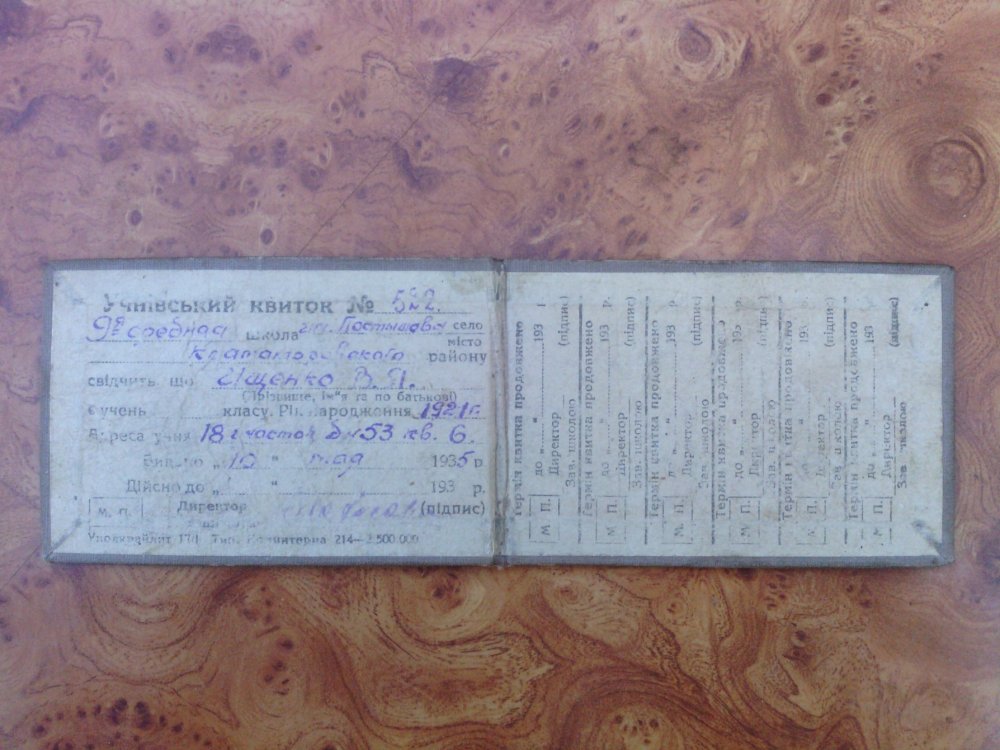 Учнівський квиток № 522.
9а средная школа ім. Постышева село
місто
Краматорського району
свідчить що Ищенко В. Я.
(Прізвище, ім'я та по батькові)
є учень класу. Рік народження 1921 г.
Адреса учня 18 участок д. № 53 кв. 6.
Видано „10 “ мая 1935 р
Дійсно до „ “ 193 р.
М. П. Директор (підпис)
214—2.500.000
Термін квитка продовжено
до „ “ 193 р.
М. П. Директор (підпис)
Зав. школою
Термін квитка продовжено
до „ “ 193 р.
М. П. Директор (підпис)
Зав. школою
Термін квитка продовжено
до „ “ 193 р.
М. П. Директор (підпис)
Зав. школою
Термін квитка продовжено
до „ “ 193 р.
М. П. Директор (підпис)
Зав. школою
Термін квитка продовжено
до „ “ 193 р.
М. П. Директор (підпис)
Зав. школою
Термін квитка продовжено
до „ “ 193 р.
М. П. Директор (підпис)
Зав. школою